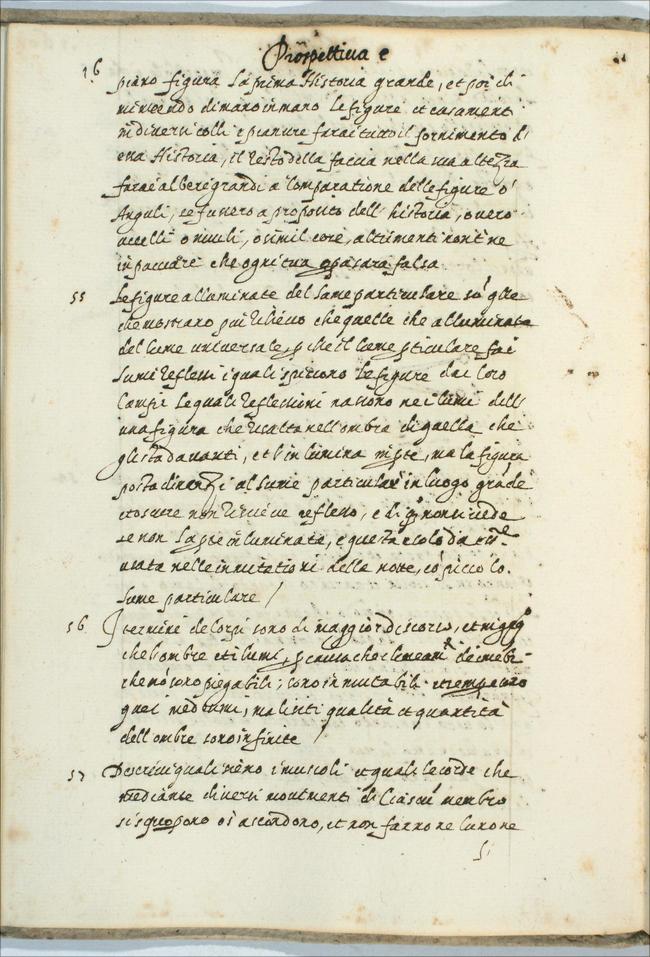 Prospettiva e
16
piano figura la prima Historia grande, et poi di
minuendo di mano in mano le figure et casamenti
in diversi colli e pianure farai tutto il fornimento di
essa Historia, il resto della faccia nella sua altezza
farai alberi grandi a comparatione delle figure o'
Anguli, se fussero a proposito dell' historia, overo
uccelli o nuuli, o simil cose, altrimenti non te ne
inpacciare che ogni tua opa sara falsa
55 Le figure alluminate del lume particulare so' q̃lle
che mostrano piu rilievo che quelle che alluminate
del lume universale, p che il lume pticulare fa i
lumi reflessi i quali spiccono le figure dai loro
campi le quali reflessioni nascono nei lumi dell
una figura che risalta nell'ombra di quella che
gli sta davanti, et l'inlumina in pte, ma la figura
posta dinanzi al lume particulare in luogo grãde
et oscuro non riceve reflesso, e di q̃sta non si vede
se non la pte inluminata, e questa e solo da
usata nelle inmitationi della notte, cõ piccolo
lume particulare /
56 I termini de Corpi sono di maggior discorso, et
che l'ombre et i lumi, p causa che i lineam.ti de mebri
che nõ sono piegabili, sono inmutabili et sempre sono
quei medesimi, ma li siti qualità et quantità
dell ombre sono infinite /
57 Descrivi quali sieno i muscoli et quali le corde che
mediante diversi movimenti di ciascũ membro
si scuopono o si ascondono, et non fanno ne l'un ne